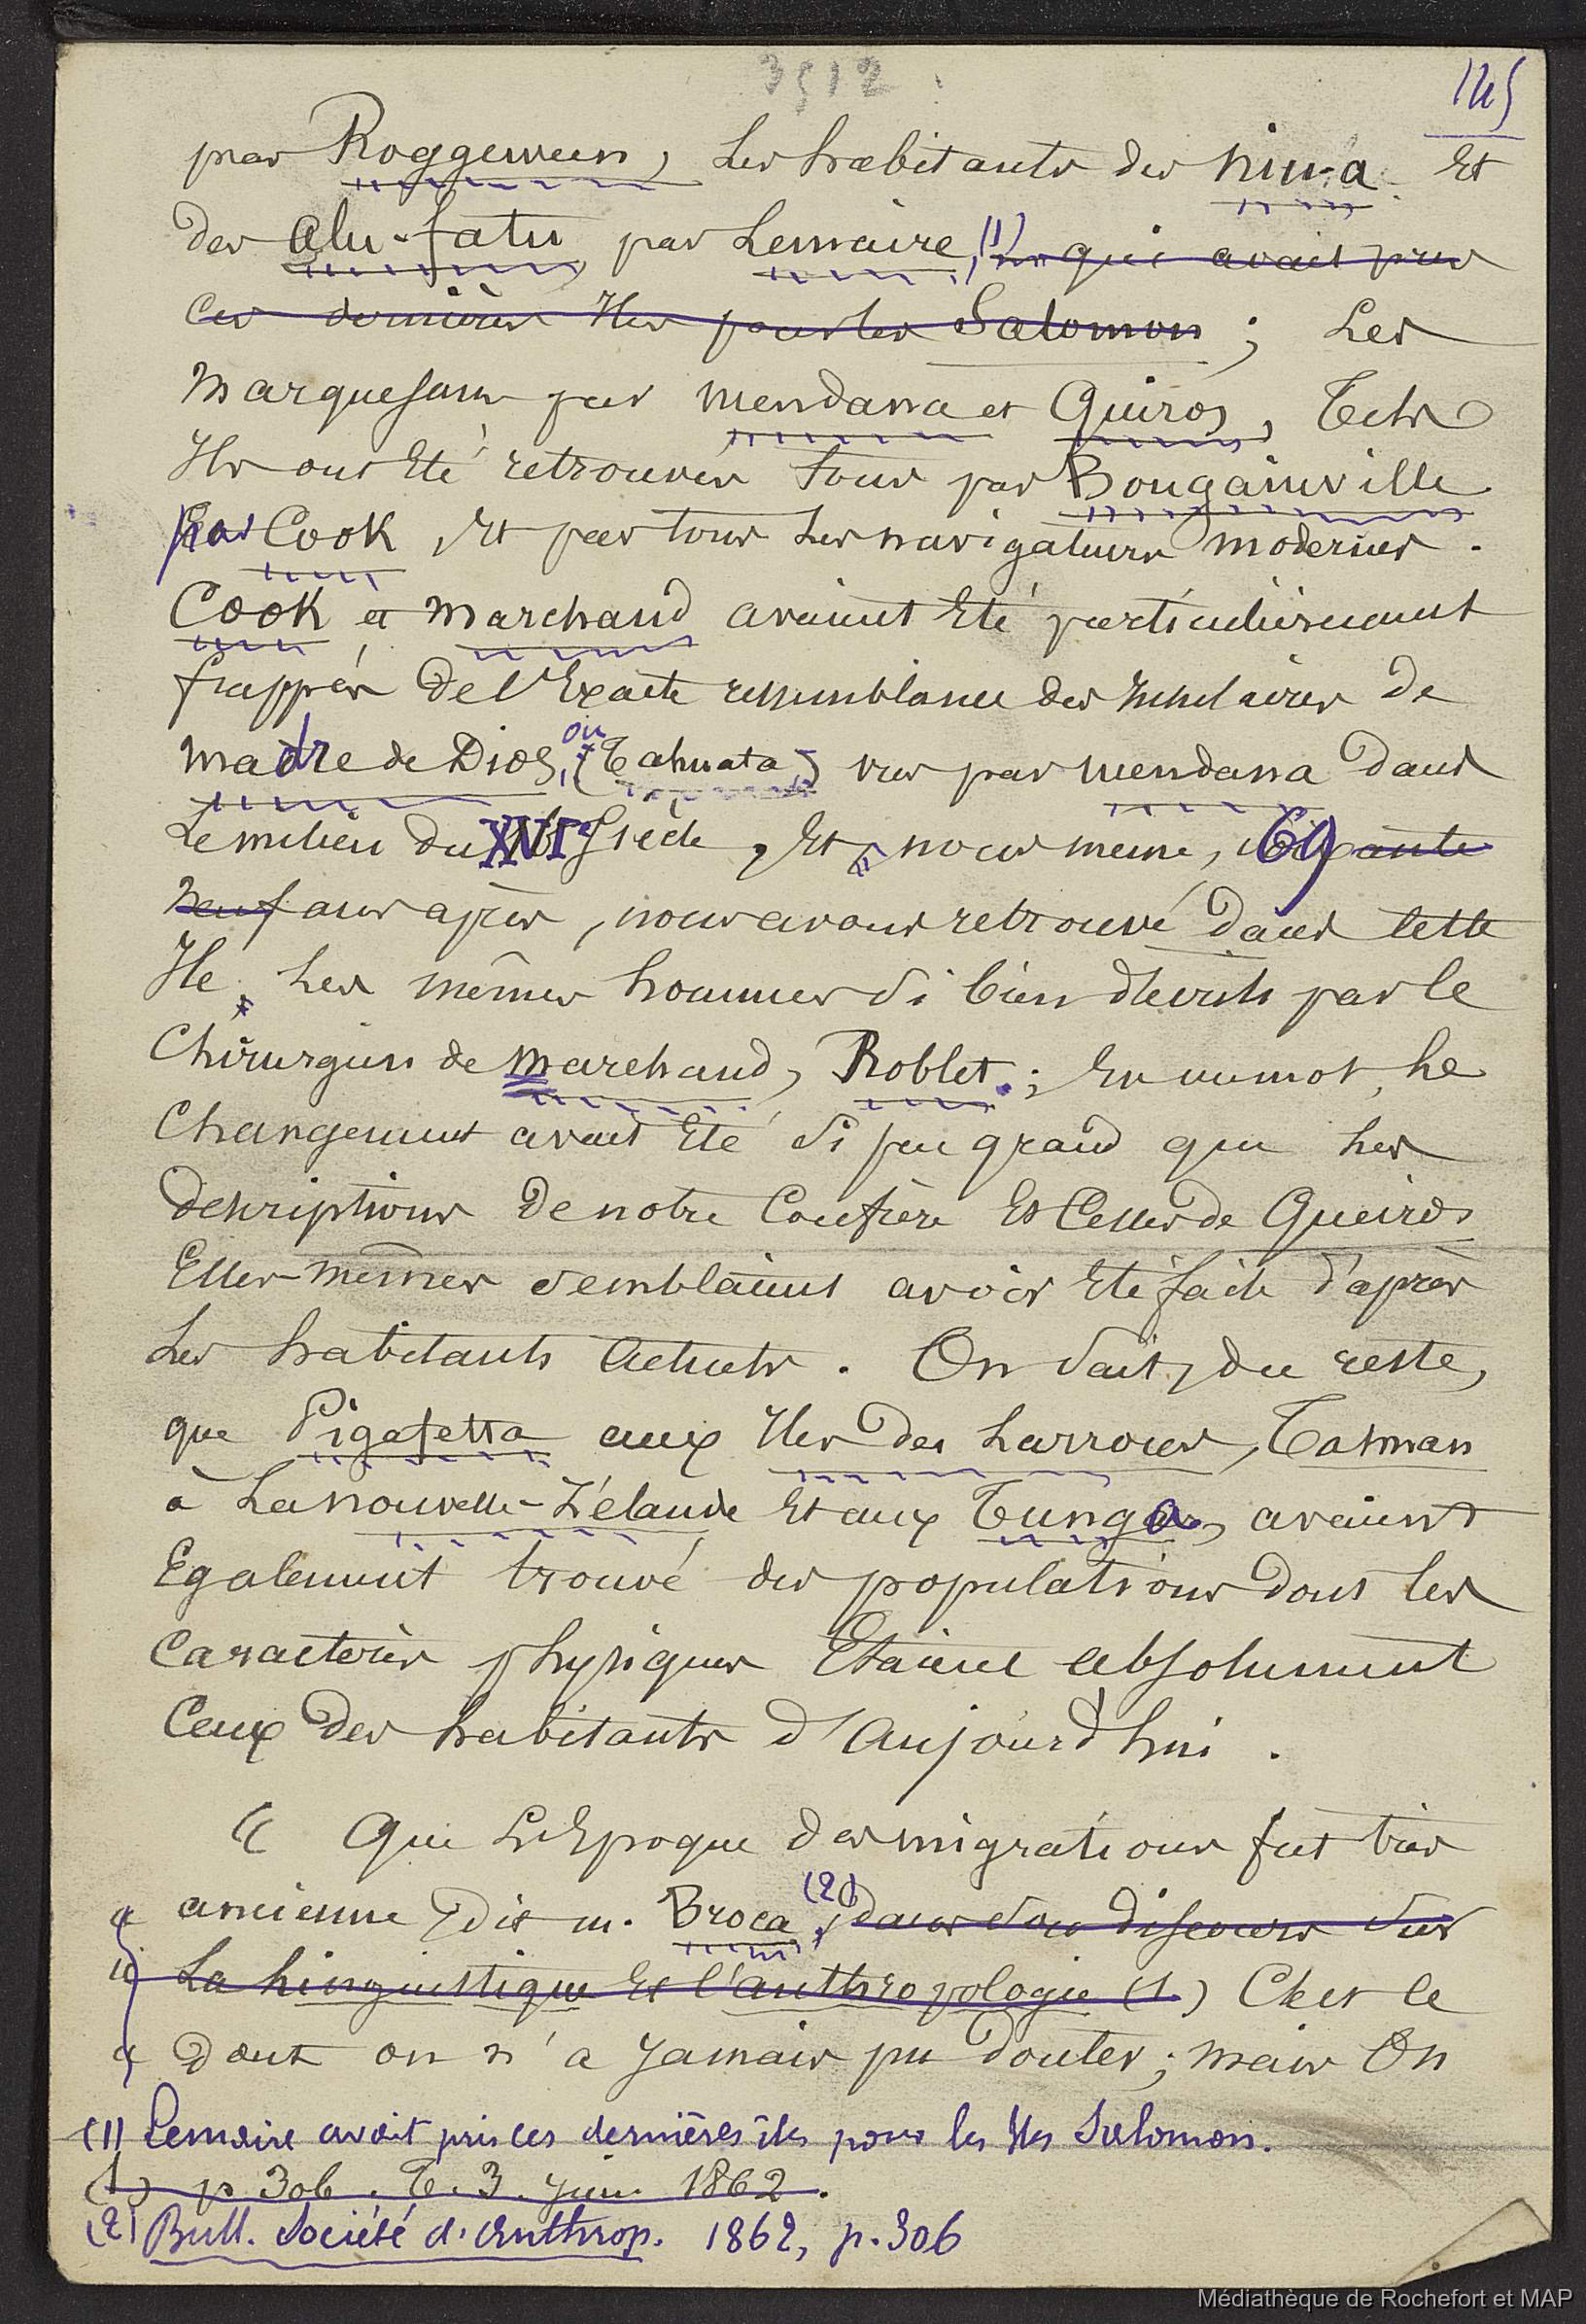 3512
145
par Roggeween, les habitants des Niu-a et
des Alu-fatu par Lemaire, (1) qui avait pris
ces dernières Iles pour les Salomon ; Les
Marquesans par Mendana et Quiros, Tels
Ils ont été retrouvés tous par Bougainville
par Cook, et par tous les navigateurs modernes.
Cook et Marchand avaient été particulièrement
frappés de l'Exacte ressemblance des Insulaires de
Madre de Dios, ou (Tahuata) vus par Mendana dans
Le milieu du XVIe Siècle, et nous même, 69
neuf ans après, nous avons retrouvé dans cette
Ile, les mêmes hommes si bien décrits par le
Chirurgien de Marchand, Roblet ; En un mot, le
Changement avait été si peu grand que les
descriptions de notre Confrère et Celles de Queiros
Elles-mêmes semblaient avoir été faite d'après
Les habitants Actuels. On sait, du reste,
que Pigafetta aux Iles des Larrons, Tasman
à La nouvelle-Zélande et aux Tunga, avaient
Egalement trouvé des populations dont les
Caractères physiques Etaient absolument
Ceux des habitants d'Aujourd'hui.
« Que L'Epoque des migrations fut très
« ancienne, dit m. Broca (2), dans son discours sur
« La Linguistique et l'anthropologie (1) C'est ce
« dont on n'a Jamais pu douter ; mais On
(1) Lemaire avait pris ces dernières îles pour les Iles Salomon.
(1) p 306. T. 3. Juin 1862.
(2) Bull. Société d'Anthrop. 1862, p. 306
Médiathèque de Rochefort et MAP